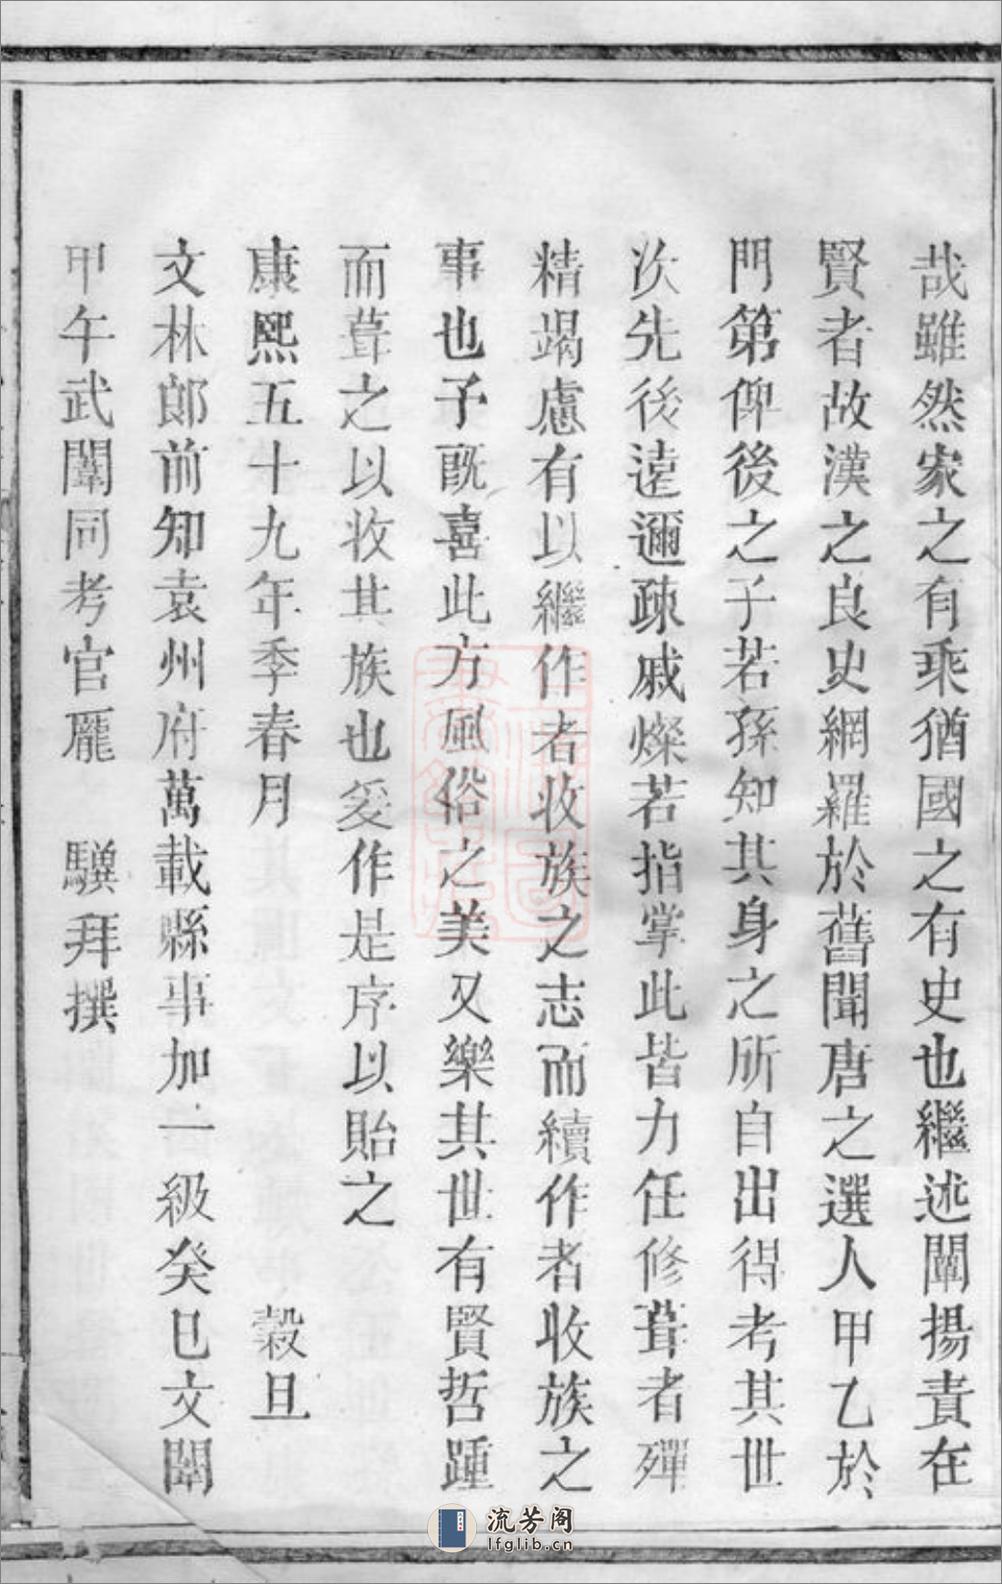 哉雖然家之有乘猶國之有史也繼述闡揚責在
賢者故漢之良史網羅於舊聞唐之選人甲乙於
門第俾後之子若孫知其身之所自出得考其世
次先後遠邇疎戚燦若指掌此皆力任修葺者殫
精竭慮有以繼作者收族之志而續作者收族之
事也予既喜此方風俗之美又樂其世有賢哲踵
而葺之以收其族也爰作是序以貽之
康熙五十九年季春月 穀旦
文林郎前知袁州府萬載縣事加一級癸巳文闈
甲午武闈同考官龎 驥拜撰
流芳阁
lfglib.cn